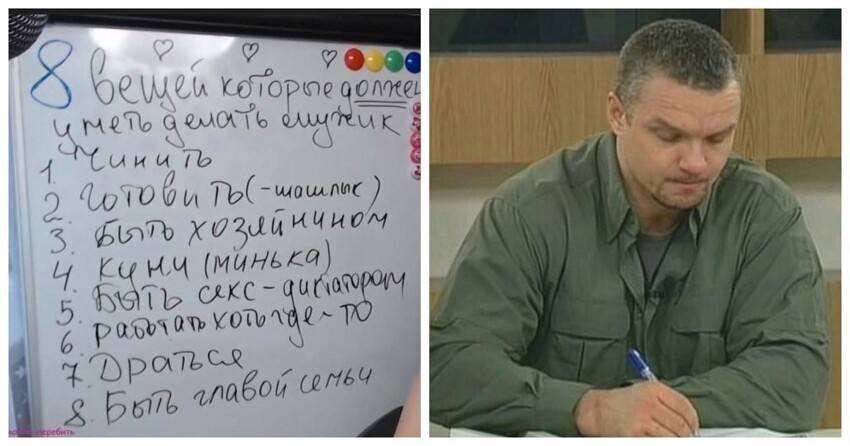 8 вещей которые должен
уметь делать мужик
1. Чинить
2. Готовить (-шашлык)
3. Быть хозяйнином
4. Куни (минька)
5. Быть секс-диктатором
6. работать хоть где-то
7. Драться
8. Быть главой семьи
перебить